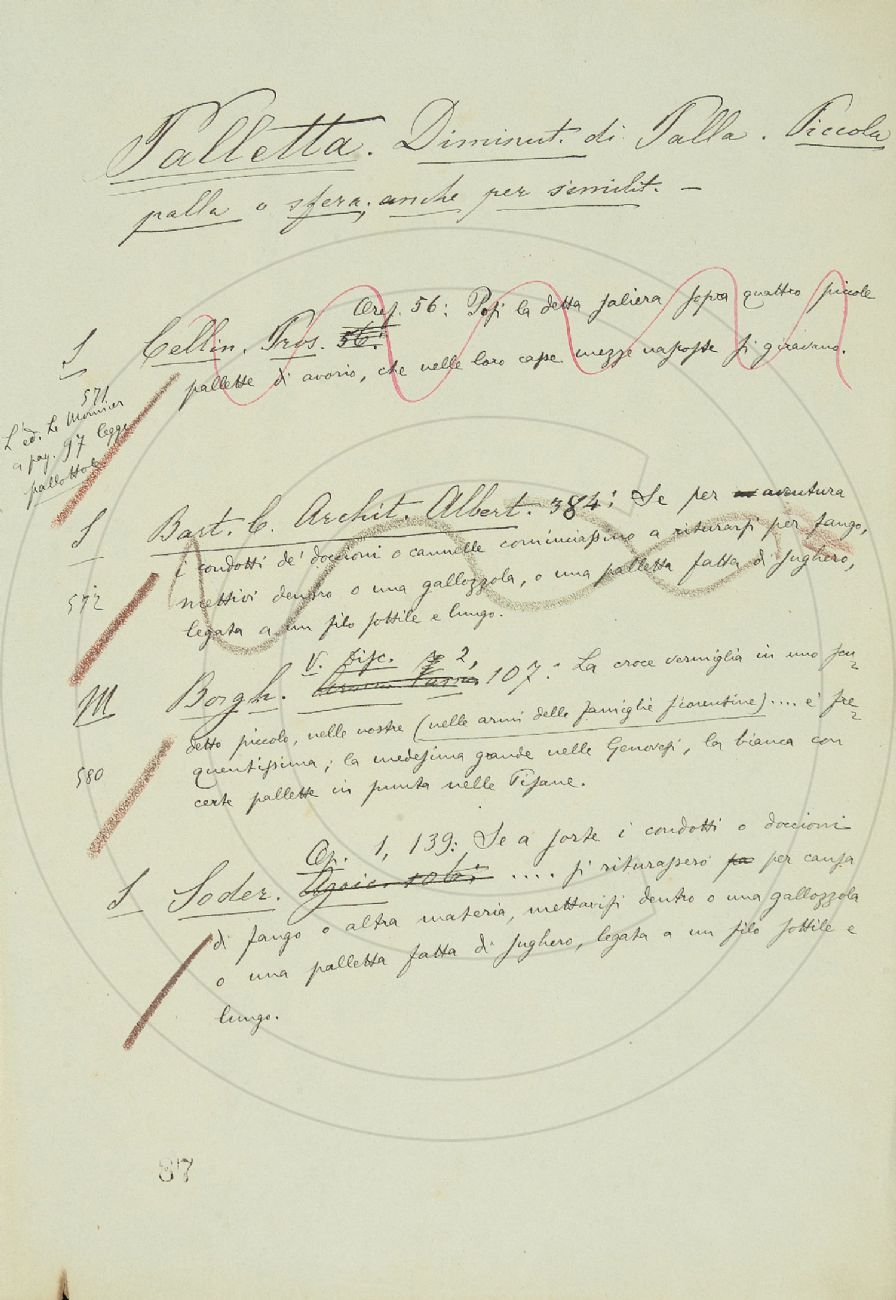 Palletta. Diminut. di Palla. Piccola
palla o sfera; anche per similit. –
S Cellin. Pros. 56. Oref. 56: Posi la detta saliera sopra quattro piccole
pallette di avorio, che nelle loro casse mezze nascoste si giravano.
571
L'ed. Le Monnier
a pag. 97 legge
pallottole
S Bart. C. Archit. Albert. 384: Se per aventura
i condotti de' doccioni o cannelle cominciassino a riturarsi per fango,
572 mettivi dentro o una gallozzola, o una palletta fatta di sughero,
legata a un filo sottile e lungo.
M Borgh. V. Disc. 2, 107: La croce vermiglia in uno scu-
detto piccolo, nelle nostre (nelle armi delle famiglie fiorentine).... è fre-
580 quentissima; la medesima grande nelle Genovesi, la bianca con
certe pallette in punta nelle Pisane.
S Soder. Op. 1, 139: Se a sorte i condotti o doccioni
.... si riturassero per causa
di fango o altra materia, mettavisi dentro o una gallozzola
o una palletta fatta di sughero, legata a un filo sottile e
lungo.
87